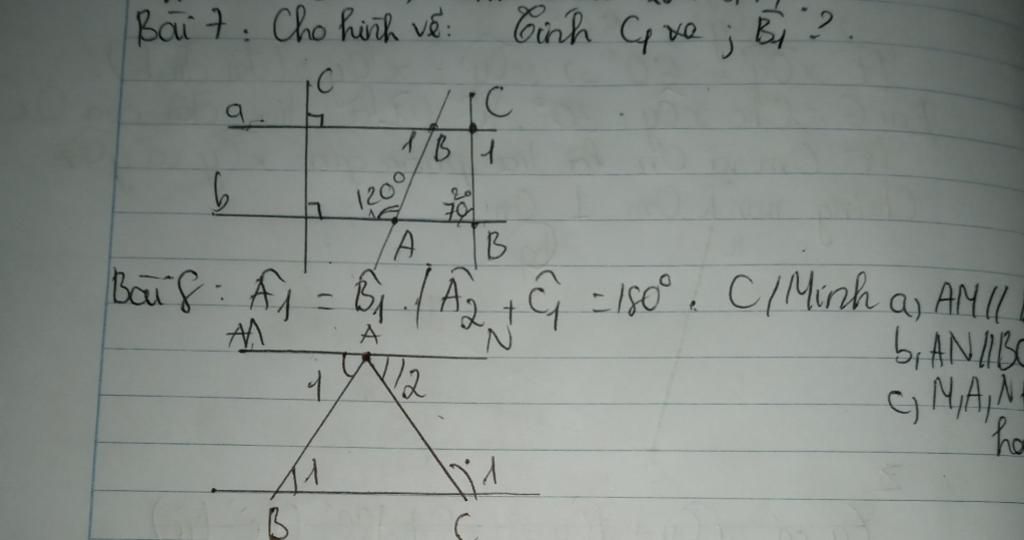 Bài 7: Cho hình vẽ: Tính C1 va ; B̂1 ?.
C
a
C
1 B 1
b
120°
70
A B
Bài 8: Â1 = B̂1. / Â2 + Ĉ1 = 180°. C/Minh a, AM//
b, AN//BC
c, M,A,N
M A N
1 2
1 1
B C